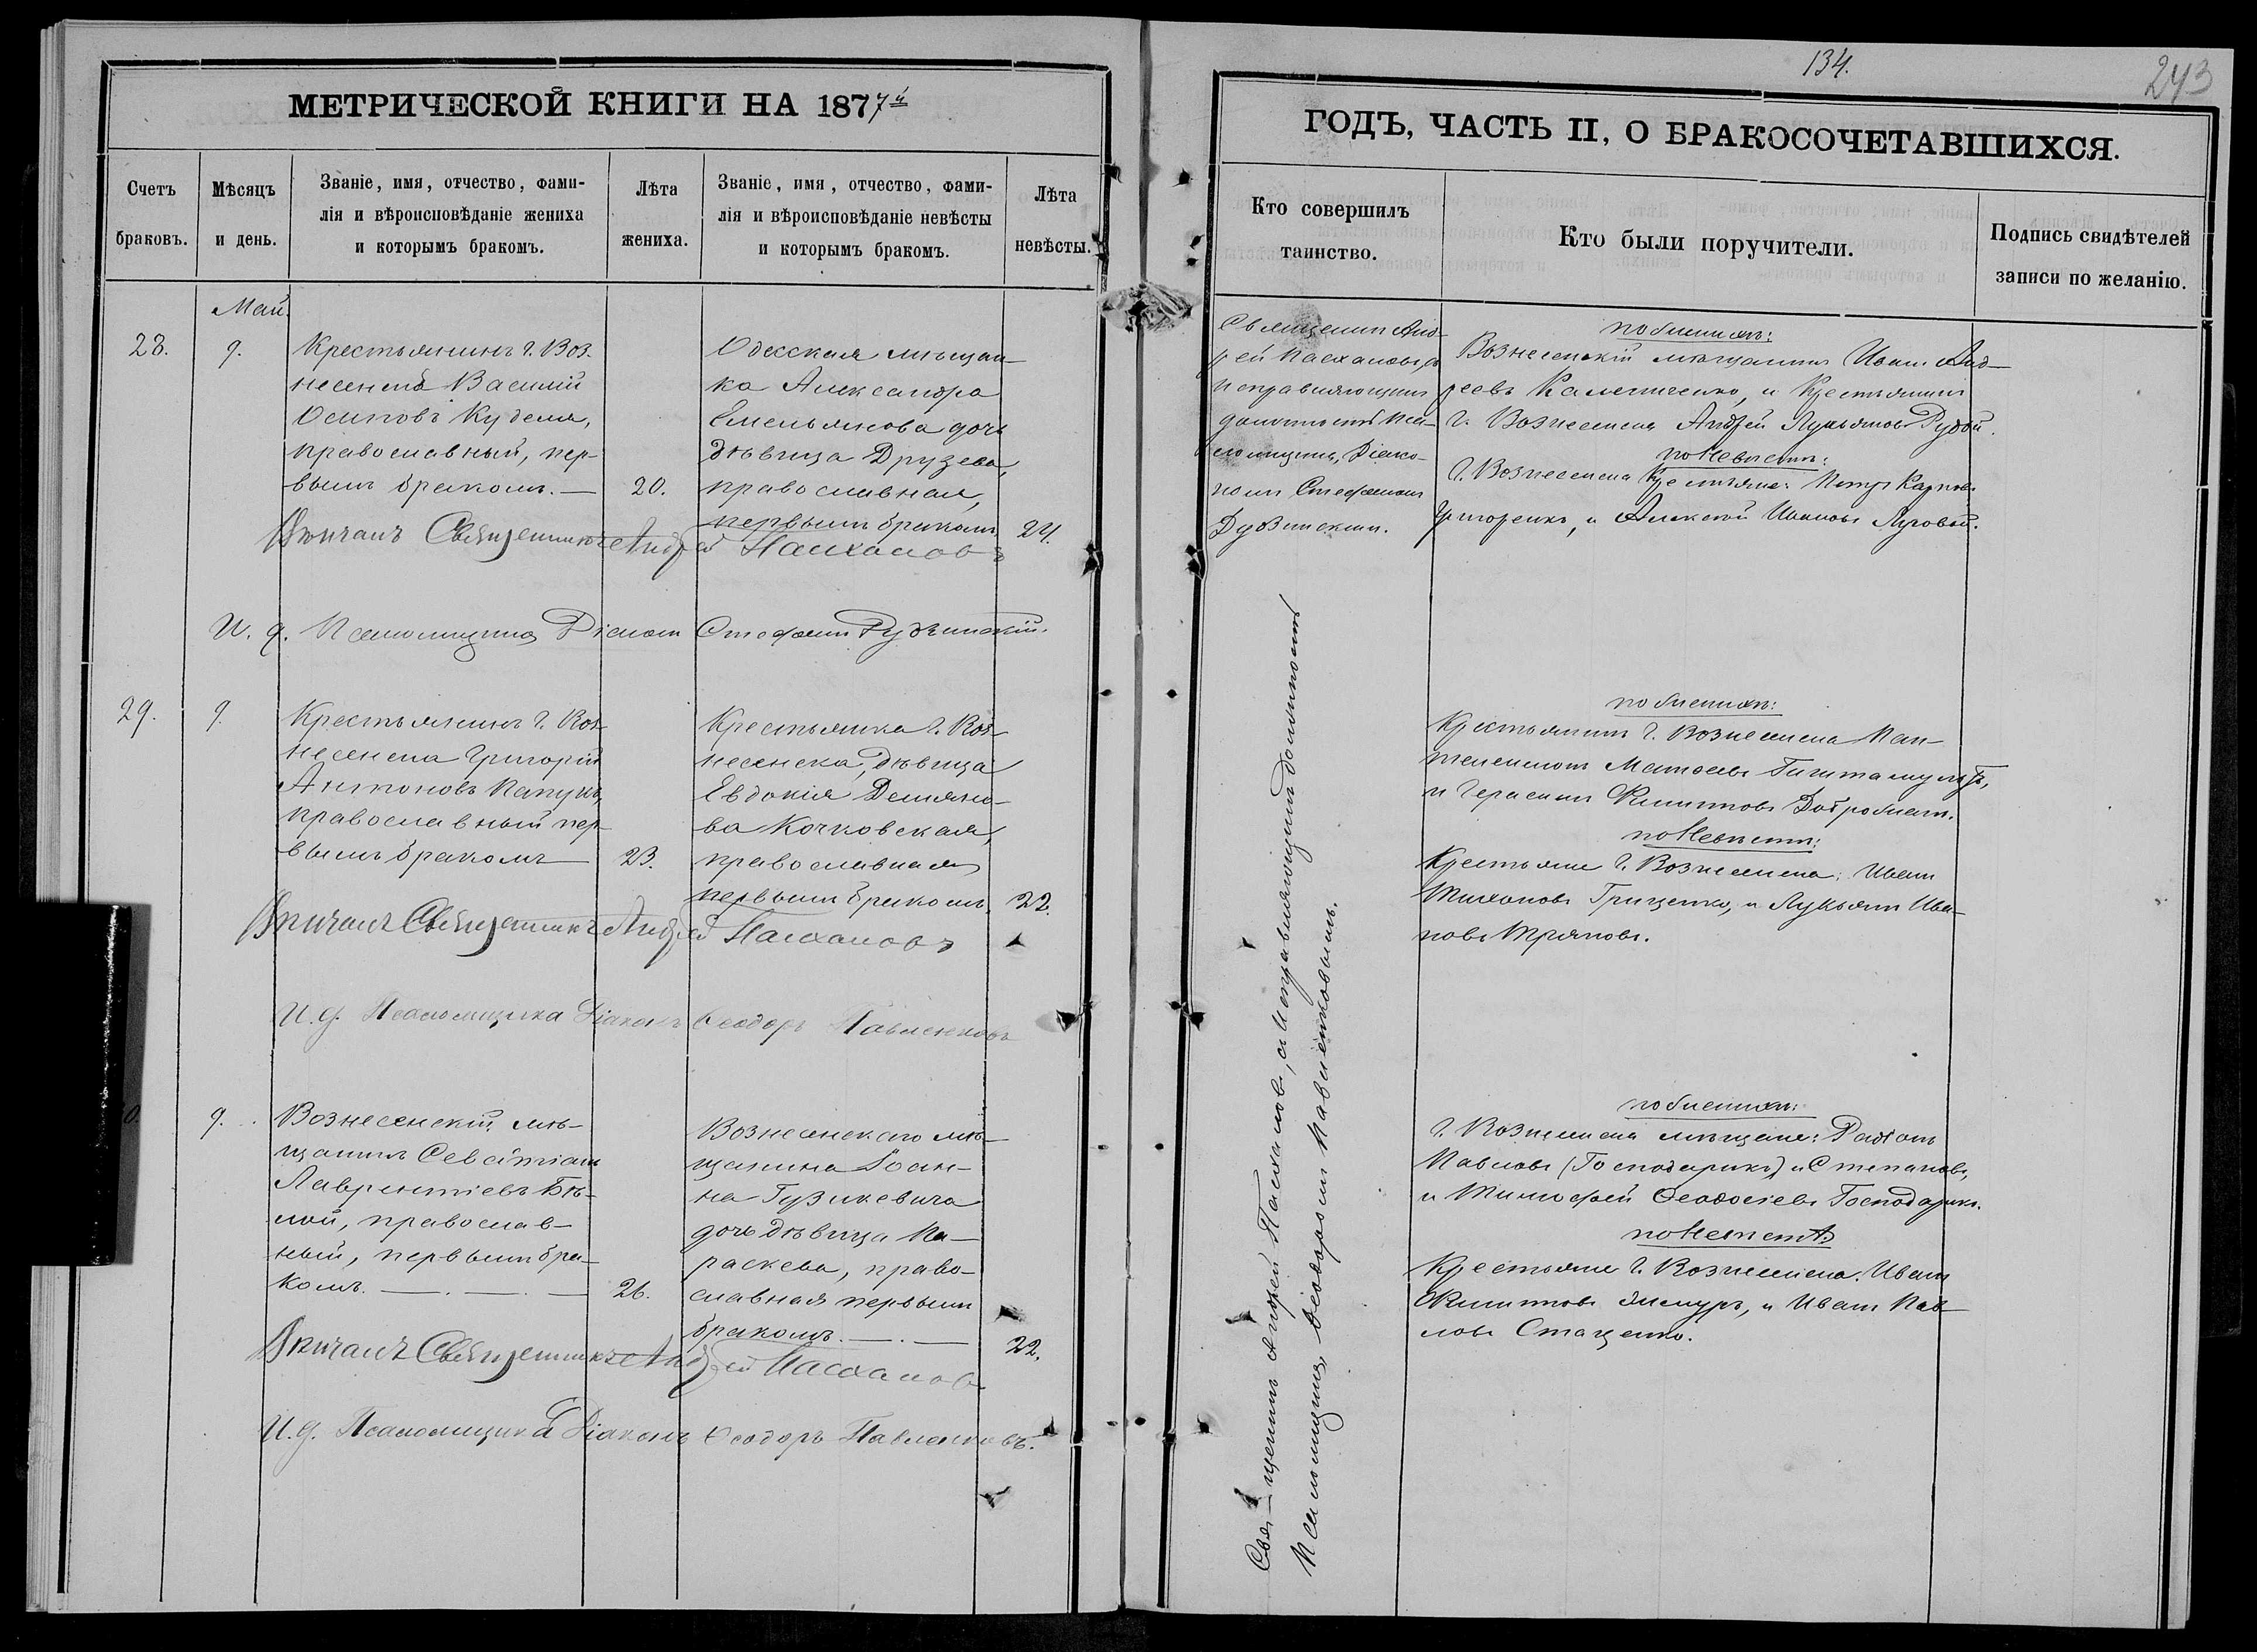 134.
243
МЕТРИЧЕСКОЙ КНИГИ НА 1877й
ГОДЪ, ЧАСТЬ II, О БРАКОСОЧЕТАВШИХСЯ.
Счетъ
браковъ.
Мѣсяцъ
и день.
Званіе, имя, отчество, фами-
лія и вѣроисповѣданіе жениха
и которымъ бракомъ.
Лѣта
жениха.
Званіе, имя, отчество, фами-
лія и вѣроисповѣданіе невѣсты
и которымъ бракомъ.
Лѣта
невѣсты.
Кто совершилъ
таинство.
Кто были поручители.
Подпись свидѣтелей
записи по желанію.
Май.
28.
9.
Крестьянинъ г. Воз-
несенска Василій
Осиповъ Куделя,
православный, пер-
вымъ бракомъ. —
20.
Одесская мѣщан-
ка Александра
Емельянова дочь
дѣвица Друзева,
православная,
первымъ бракомъ
24.
Священникъ Анд-
рей Пасхаловъ, съ
исправляющимъ
должность Пса-
ломщика, Діако-
номъ Стефаномъ
по женихѣ:
Вознесенскій мѣщанинъ Иванъ Анд-
реевъ и Крестьянинъ
г. Вознесенска Андрей Лукьяновъ Рудой.
по Невѣстѣ:
г. Вознесенска Крестьяне: Петръ Карповъ
Григоренко, и Алексѣй Ивановъ Луговой.
Вѣнчалъ Священникъ Андрей Пасхаловъ
И. д. Псаломщика Діаконъ Стефанъ
29.
9.
Крестьянинъ г. Воз-
несенска Григорій
Антоновъ
православный пер-
вымъ бракомъ
23.
Крестьянка г. Воз-
несенска, дѣвица
Евдокія Демяно-
ва Кочковская,
православная
первымъ бракомъ.
22.
по женихѣ:
Крестьянинъ г. Вознесенска Пан-
телеимонъ Матѳеевъ
и Герасимъ Филиповъ
по Невѣстѣ:
Крестьяне г. Вознесенска: Иванъ
Тихоновъ Грищенко, и Лукьянъ Ива-
новъ Тряновъ.
Вѣнчалъ Священникъ Андрей Пасхаловъ
И. д. Псаломщика Діаконъ Ѳеодоръ Павленковъ
9.
Вознесенскій мѣ-
щанинъ Севастіанъ
Лаврентіевъ Бѣ-
лой, православ-
ный, первымъ бра-
комъ. —. —. —
26.
Вознесенскаго мѣ-
щанина Іоан-
на Гузикевича
дочь дѣвица Па-
раскева, право-
славная первымъ
бракомъ. —. —
22.
по женихѣ:
г. Вознесенска мѣщане: Родіонъ
Павловъ (Господарикъ) и Степановъ,
и Тимофей Ѳеодосіевъ Господарикъ.
по Невѣстѣ:
Крестьяне г. Вознесенска: Иванъ
Филиповъ и Иванъ Пав-
ловъ Стаценко.
Вѣнчалъ Священникъ Андрей Пасхаловъ
И. д. Псаломщика Діаконъ Ѳеодоръ Павленковъ.
Свя-щенникъ Андрей Пасхаловъ, съ исправляющимъ должность
Псаломщика, Ѳеодоромъ Павленковымъ.